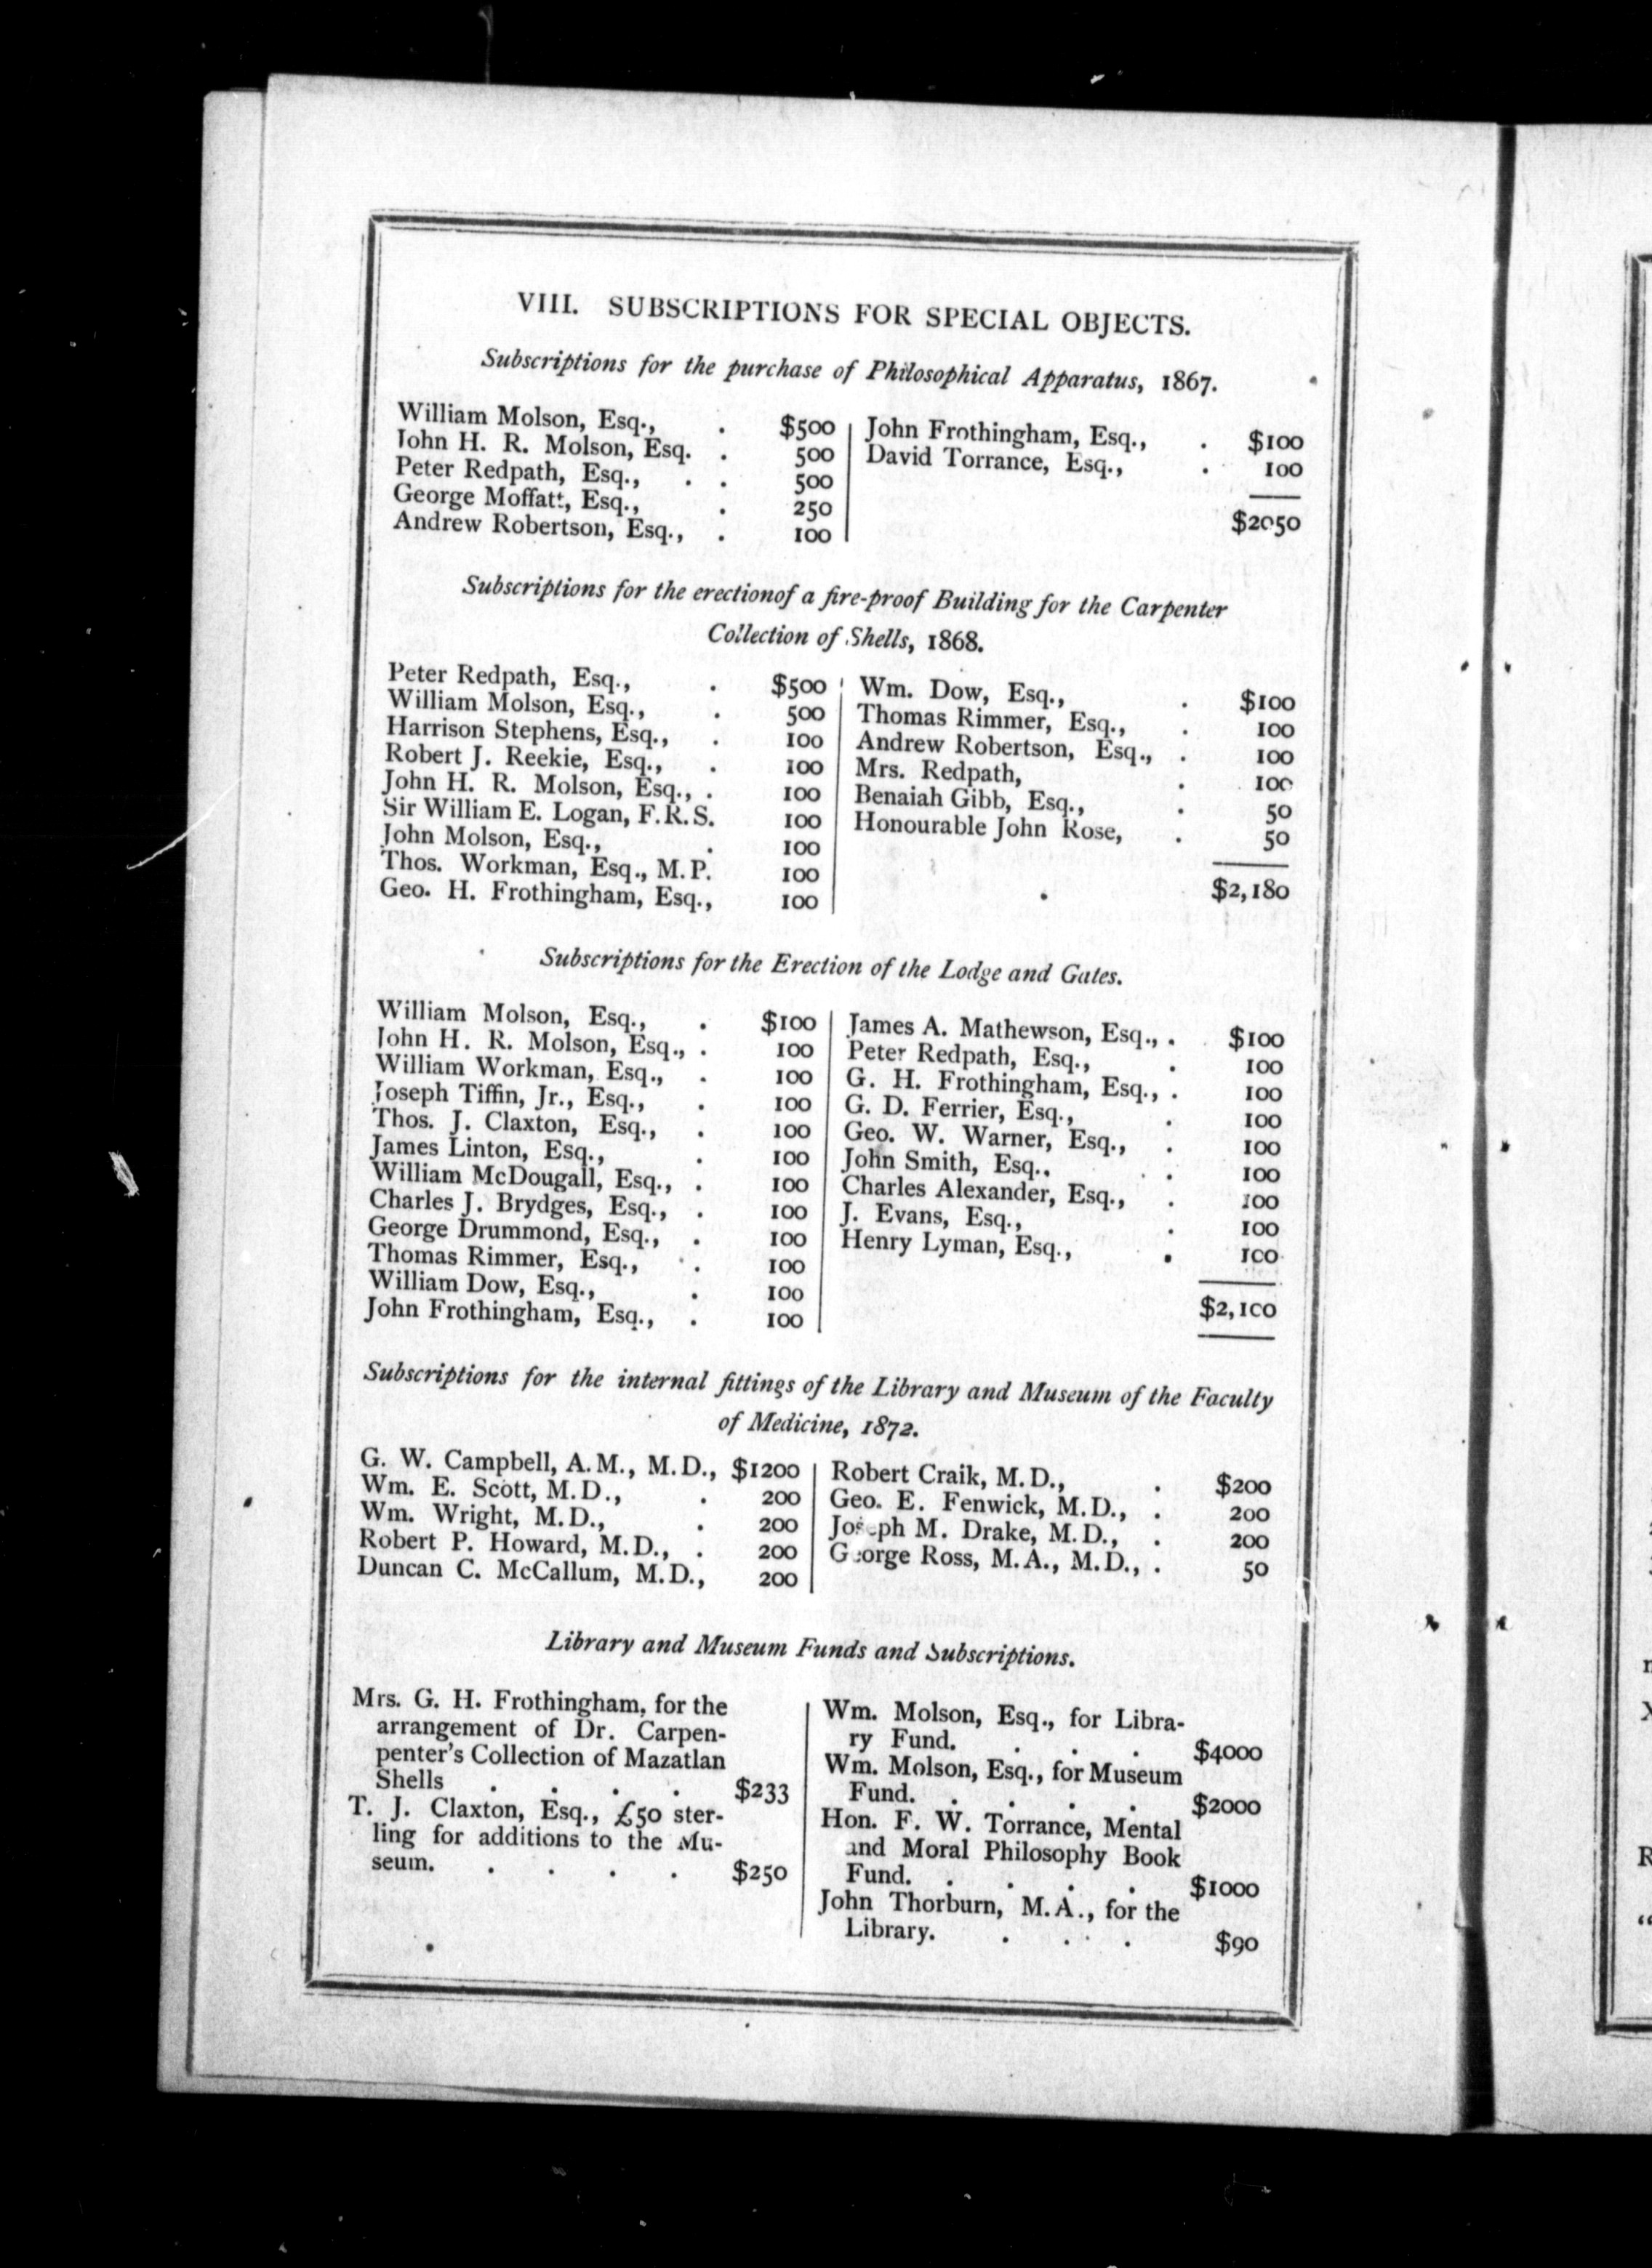 VIII. SUBSCRIPTIONS FOR SPECIAL OBJECTS.
Subscriptions for the purchase of Philosophical Apparatus, 1867.
William Molson, Esq., . $500
John H. R. Molson, Esq. . 500
Peter Redpath, Esq., . . 500
George Moffatt, Esq., . 250
Andrew Robertson, Esq., . 100
John Frothingham, Esq., . $100
David Torrance, Esq., . 100
$2050
Subscriptions for the erectionof a fire-proof Building for the Carpenter
Collection of Shells, 1868.
Peter Redpath, Esq., . $500
William Molson, Esq., . 500
Harrison Stephens, Esq., . 100
Robert J. Reekie, Esq., . 100
John H. R. Molson, Esq., . 100
Sir William E. Logan, F.R.S. 100
John Molson, Esq., . 100
Thos. Workman, Esq., M.P. 100
Geo. H. Frothingham, Esq., 100
Wm. Dow, Esq., . $100
Thomas Rimmer, Esq., . 100
Andrew Robertson, Esq., . 100
Mrs. Redpath, . 100
Benaiah Gibb, Esq., . 50
Honourable John Rose, . 50
$2,180
Subscriptions for the Erection of the Lodge and Gates.
William Molson, Esq., . $100
John H. R. Molson, Esq., . 100
William Workman, Esq., . 100
Joseph Tiffin, Jr., Esq., . 100
Thos. J. Claxton, Esq., . 100
James Linton, Esq., . 100
William McDougall, Esq., . 100
Charles J. Brydges, Esq., . 100
George Drummond, Esq., . 100
Thomas Rimmer, Esq., . 100
William Dow, Esq., . 100
John Frothingham, Esq., . 100
James A. Mathewson, Esq., . $100
Peter Redpath, Esq., . 100
G. H. Frothingham, Esq., . 100
G. D. Ferrier, Esq., . 100
Geo. W. Warner, Esq., . 100
John Smith, Esq., . 100
Charles Alexander, Esq., . 100
J. Evans, Esq., . 100
Henry Lyman, Esq., . 100
$2,100
Subscriptions for the internal fittings of the Library and Museum of the Faculty
of Medicine, 1872.
G. W. Campbell, A.M., M.D., $1200
Wm. E. Scott, M.D., . 200
Wm. Wright, M.D., . 200
Robert P. Howard, M.D., . 200
Duncan C. McCallum, M.D., 200
Robert Craik, M.D., . $200
Geo. E. Fenwick, M.D., . 200
Joseph M. Drake, M.D., . 200
George Ross, M.A., M.D., . 50
Library and Museum Funds and Subscriptions.
Mrs. G. H. Frothingham, for the
arrangement of Dr. Carpen-
penter's Collection of Mazatlan
Shells . . . . $233
T. J. Claxton, Esq., £50 ster-
ling for additions to the Mu-
seum. . . . . $250
Wm. Molson, Esq., for Libra-
ry Fund. . . . $4000
Wm. Molson, Esq., for Museum
Fund. . . . . $2000
Hon. F. W. Torrance, Mental
and Moral Philosophy Book
Fund. . . . . $1000
John Thorburn, M.A., for the
Library. . . . $90